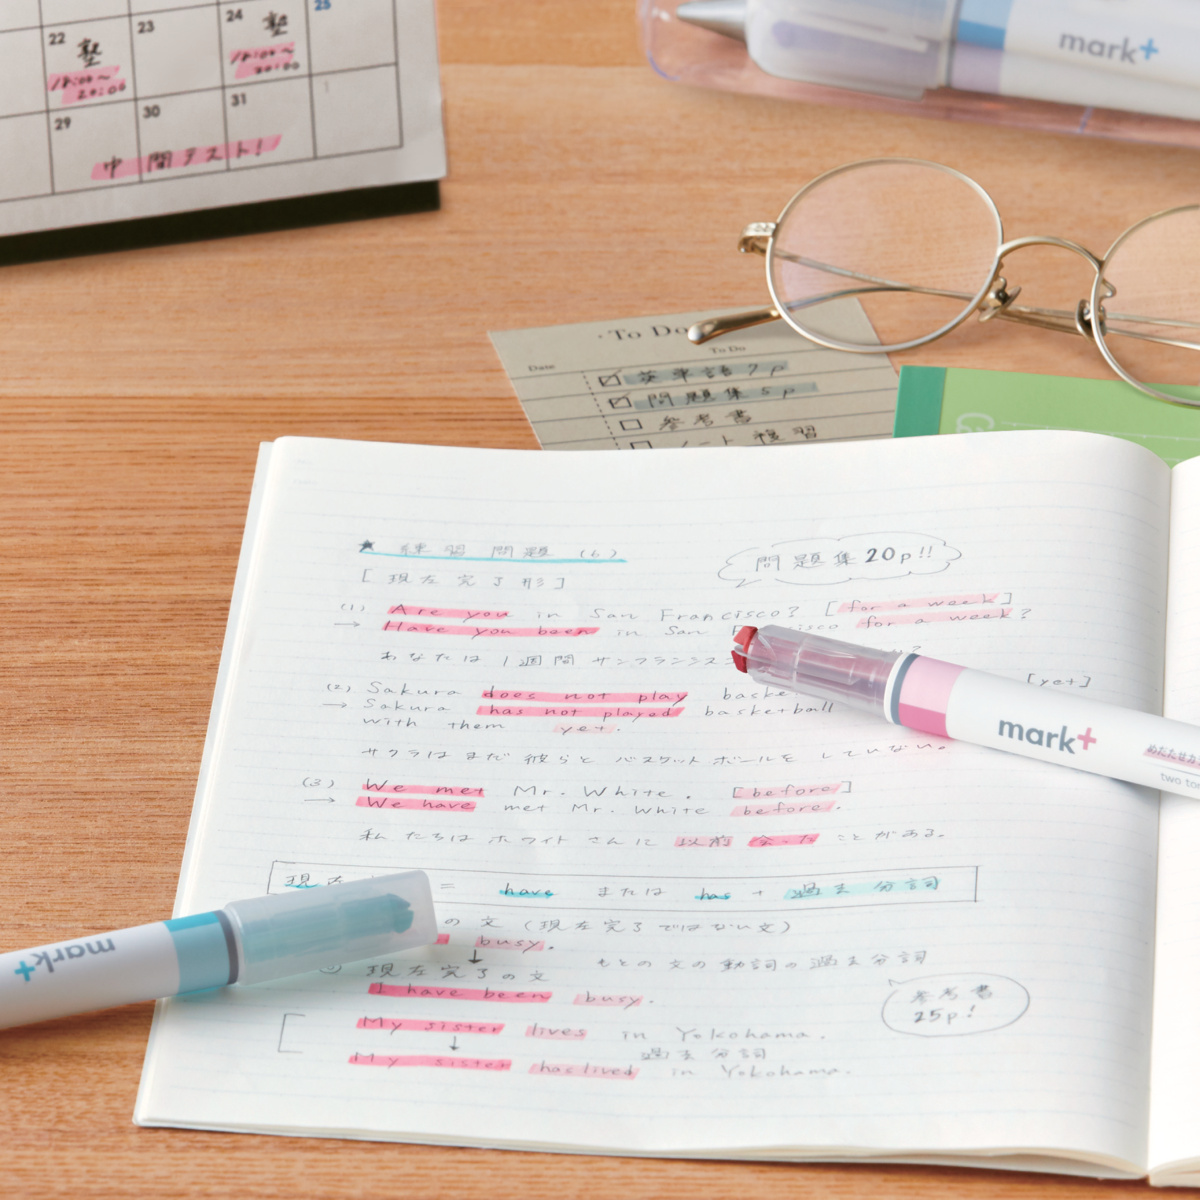 22 塾
23
24 塾
25
18:00～
20:00
18:00～
20:00
29
30
31
1
中間テスト!
mark+
・To Do
To Do
Date
☑ 英単語 7p
☑ 問題集 5p
☐ 参考書
☐ ノート 復習
★ 練習問題 (6)
問題集 20p!!
[現在完了形]
(1) Are you in San Francisco? [for a week]
→ Have you been in San Francisco for a week?
あなたは1週間サンフランシスコ
[yet]
(2) Sakura does not play baske
→ Sakura has not played basketball
with them yet.
サクラはまだ彼らとバスケットボールをしていない。
(3) We met Mr. White. [before]
→ We have met Mr. White before.
私たちはホワイトさんに以前会ったことがある。
mark+
two to
現在 = have または has + 過去分詞
の文 (現在完了ではない文)
busy.
↓
もとの文の動詞の過去分詞
現在完了の文
I have been busy.
参考書
25p!
My sister lives in Yokohama.
↓
過去分詞
My sister has lived in Yokohama.
mark+